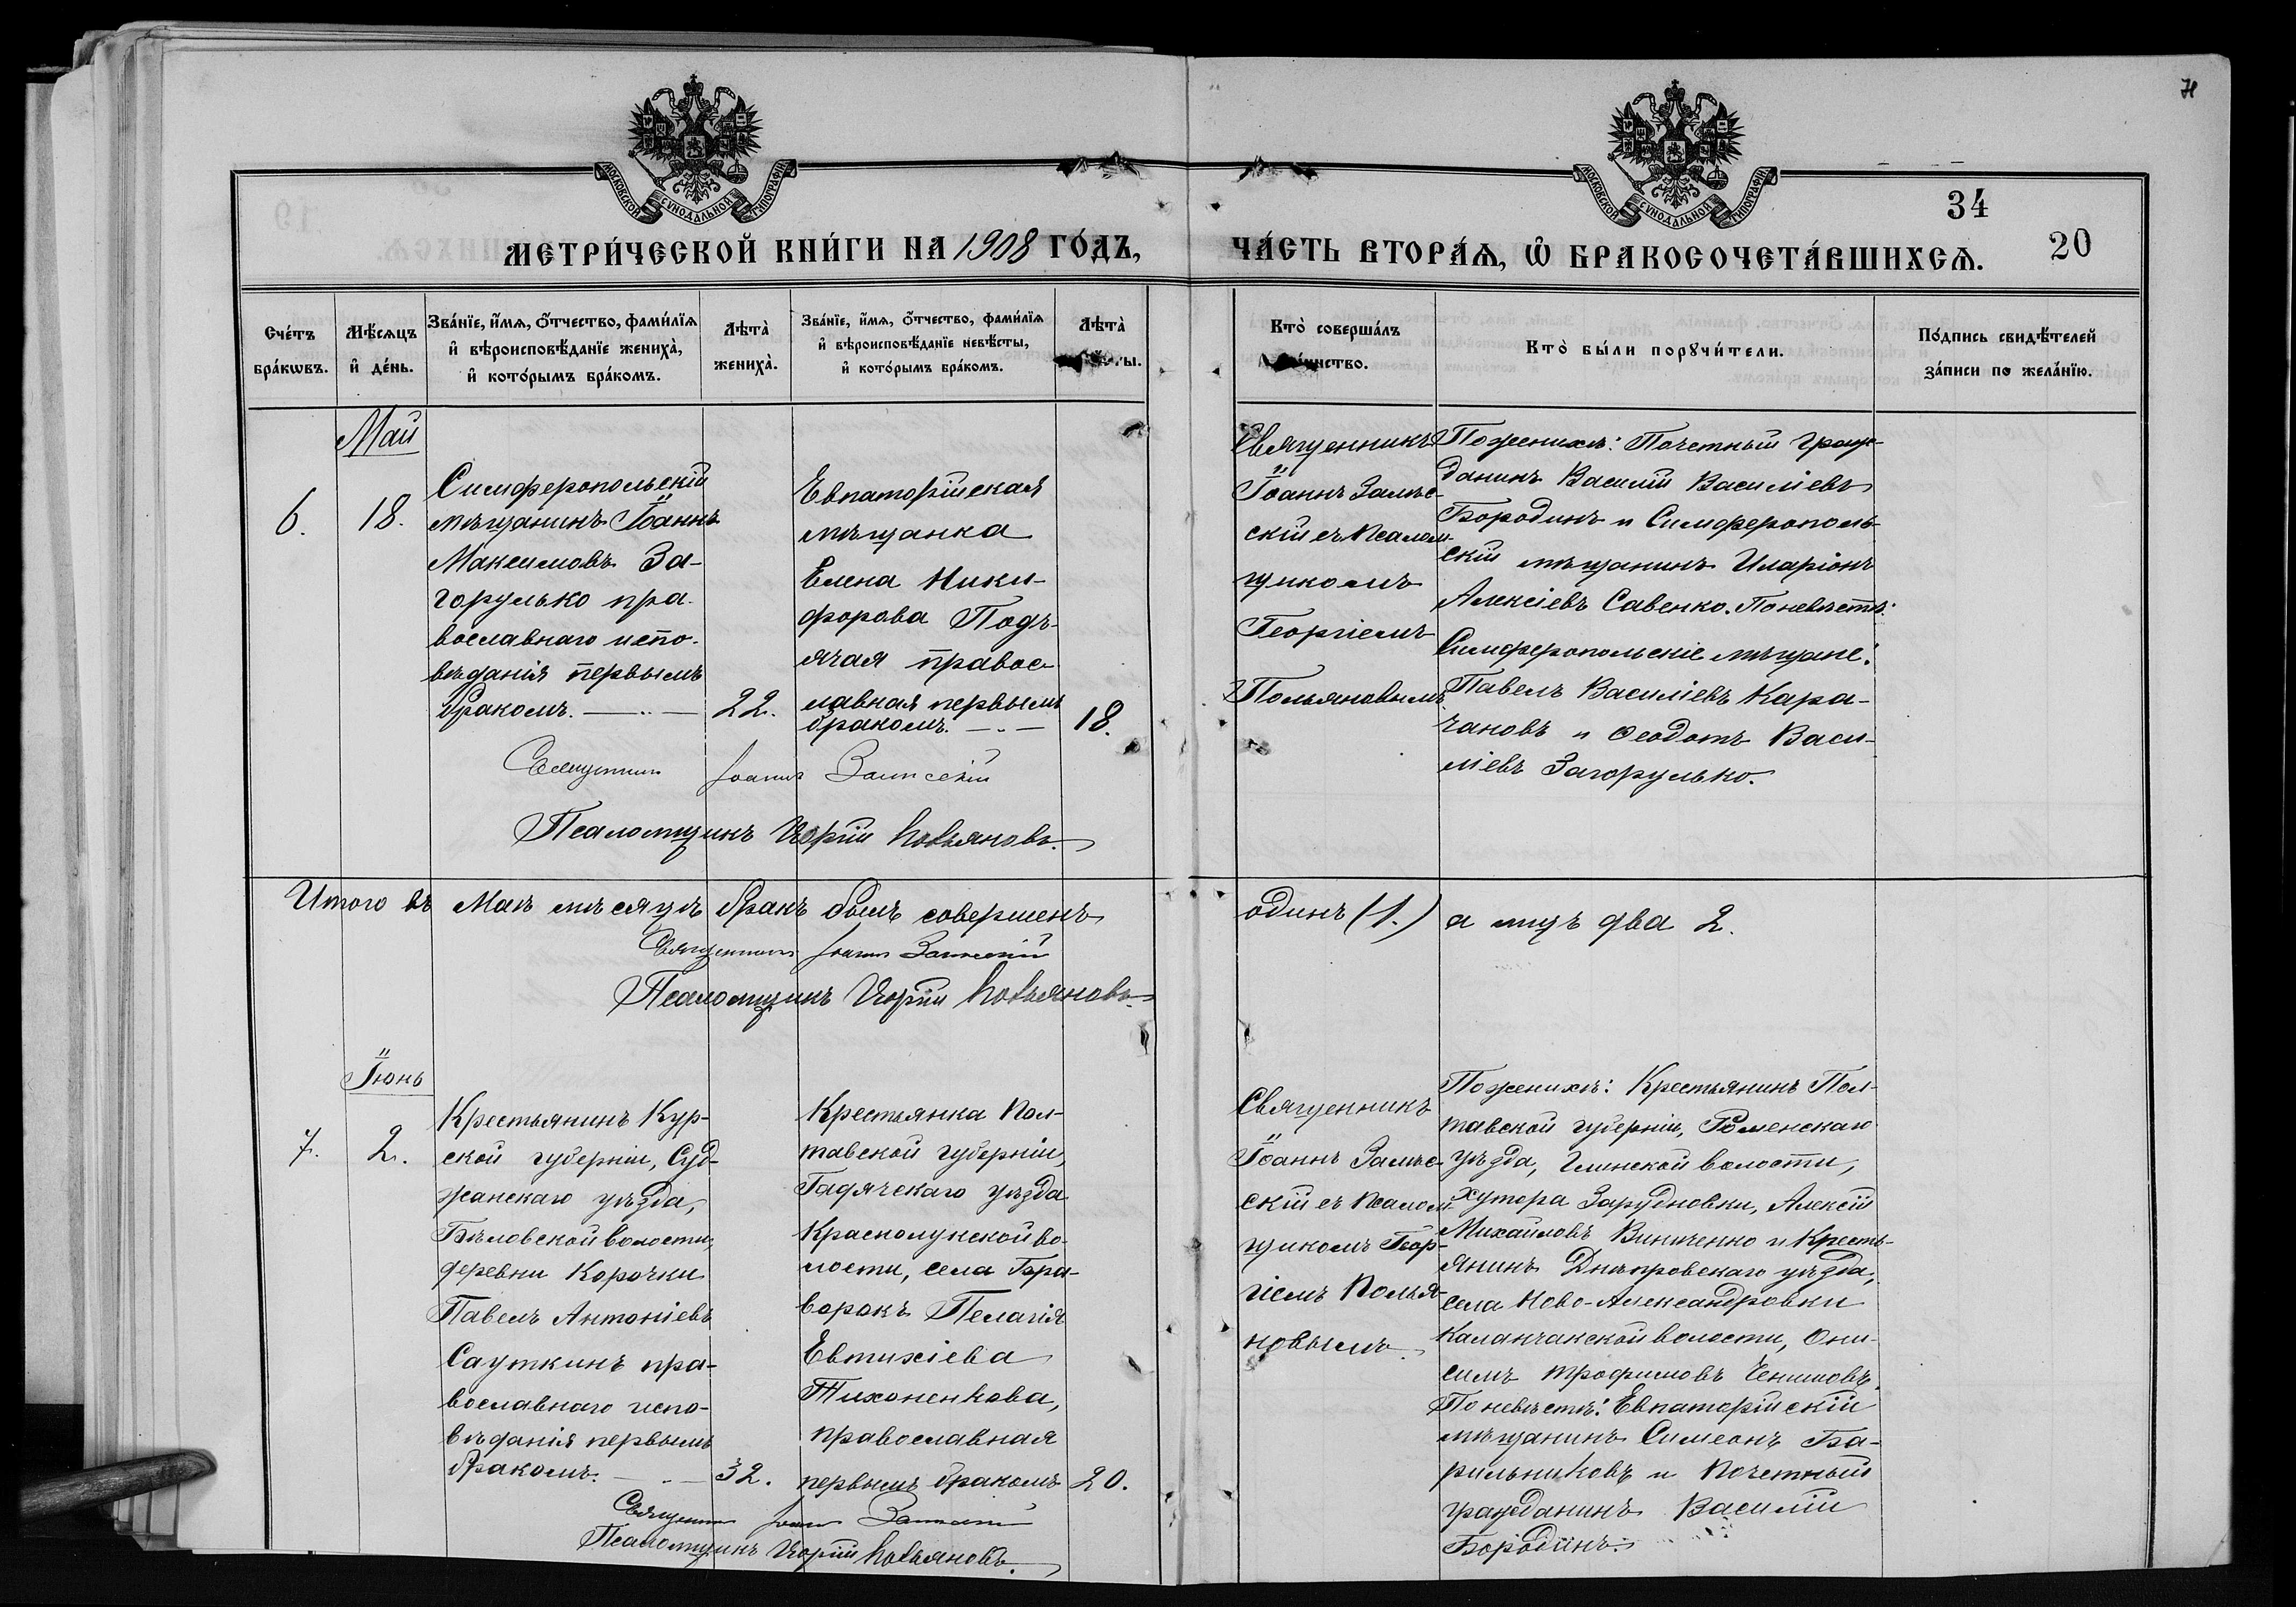 МОСКОВСКОЙ СѴНОДАЛЬНОЙ ТИПОГРАФІИ
МОСКОВСКОЙ СѴНОДАЛЬНОЙ ТИПОГРАФІИ
34
МЕТРИ́ЧЕСКОЙ КНИ́ГИ НА 1908 ГО́ДЪ,
ЧА́СТЬ ВТОРА́Ѧ, Ѡ҆ БРАКОСОЧЕТА́ВШИХСѦ.
20
Сче́тъ бра́кѡвъ.
Мѣ́сѧцъ и҆ де́нь.
Зва́нїе, и҆́мѧ, ѻ҆́тчество, фамѝлїѧ и҆ вѣроисповѣ́данїе жениха̀, и҆ кото́рымъ бра́комъ.
Лѣта̀ жениха̀.
Зва́нїе, и҆́мѧ, ѻ҆́тчество, фамѝлїѧ и҆ вѣроисповѣ́данїе невѣ́сты, и҆ кото́рымъ бра́комъ.
Лѣта̀
Кто̀ соверша́лъ
Кто̀ бы́ли порꙋчи́тели.
По́дпись свидѣ́телей за́писи по жела́нїю.
Май
6.
18.
Симферопольскій
мѣщанинъ Іоаннъ
Максимовъ За-
горулько пра-
вославнаго испо-
вѣданія первымъ
бракомъ.
22.
Евпаторійская
мѣщанка
Елена Ники-
форова Подъ-
ячая правос-
лавная первымъ
бракомъ.
18.
Священникъ
Іоаннъ Замѣс-
скій съ псалом-
щикомъ
Георгіемъ
Польяновымъ
По женихѣ: Почетный граж-
данинъ Василій Васильевъ
Бородинъ и Симферополь-
скій мѣщанинъ Иларіонъ
Алексіевъ Савенко. По невѣстѣ:
Симферопольскіе мѣщане:
Павелъ Василіевъ Кара-
чановъ и Ѳеодотъ Васи-
ліевъ Загорулько.
Священникъ Іоаннъ
Псаломщикъ
Итого въ Маѣ мѣсяцѣ бракъ былъ совершенъ
одинъ (1.) а лицъ два 2.
Священникъ Іоаннъ
Псаломщикъ
Іюнь
7.
2.
Крестьянинъ Кур-
ской губерніи, Суд-
жанскаго уѣзда,
Бѣловской волости,
деревни Корочки
Павелъ Антоніевъ
Сауткинъ пра-
вославнаго испо-
вѣданія первымъ
бракомъ.
32.
Крестьянка Пол-
тавской губерніи,
Гадячскаго уѣзда
Краснолукской во-
лости, села Бра-
ворокъ Пелагія
Евтихіева
Тихоненкова,
православная
первымъ бракомъ
20.
Священникъ
Іоаннъ Замѣс-
скій съ псалом-
щикомъ Геор-
гіемъ Полья-
новымъ.
По женихѣ: Крестьянинъ Пол-
тавской губерніи, Роменскаго
уѣзда, Глинской волости,
хутора Зарудновки, Алексій
Михайловъ Винниченко и Кресть-
янинъ Днѣпровскаго уѣзда,
села Ново-Александровки
Каланчакской волости, Они-
симъ Трофимовъ
По невѣстѣ: Евпаторійскій
мѣщанинъ Симеонъ Ба-
рильниковъ и Почетный
гражданинъ Василій
Бородинъ.
Священникъ
Псаломщикъ